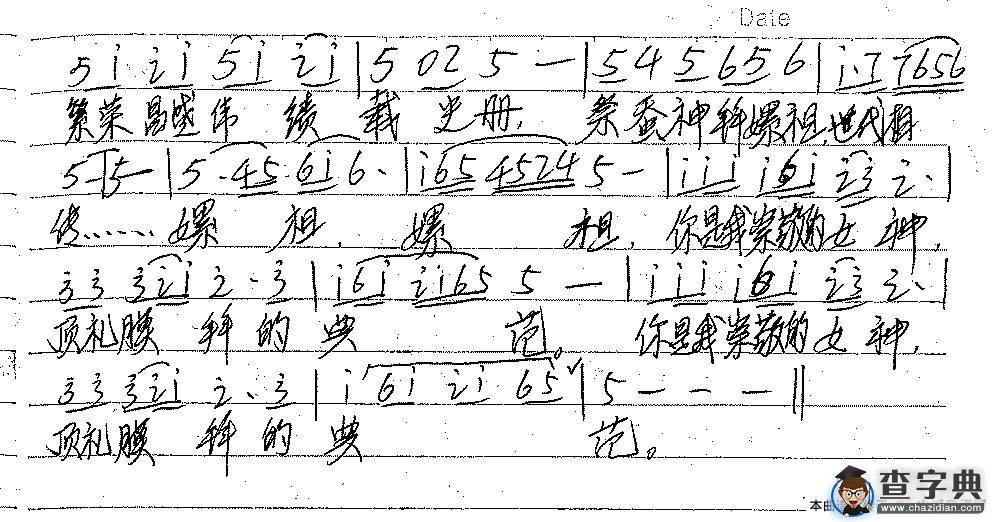 Date
5 i 2̇ i 5 i 2̇ i | 5 02 5 — | 5 4 5 6 5 6 | i · i 7656
繁荣昌盛伟 绩 载 史册, 祭蚕神拜嫘祖,世代相
5 5 — | 5 · 45 · 6i 6 · | i65 4524 5 — | i i i i6i 2̇3̇ 2̇ · |
传…… 嫘 祖, 嫘 祖, 你是我崇敬的女神,
3̇ 3̇ 3̇2̇i 2̇ · 3̇ | i6i 2̇i65 5 — | i i i i6i 2̇3̇ 2̇ · |
顶礼膜 拜的典 范。 你是我崇敬的女神,
3̇ 3̇ 3̇2̇i 2̇ · 3̇ | i 6i 2̇i 65 | 5 — — — ‖
顶礼膜 拜的典 范。
本曲
查字典
www.chazidian.com